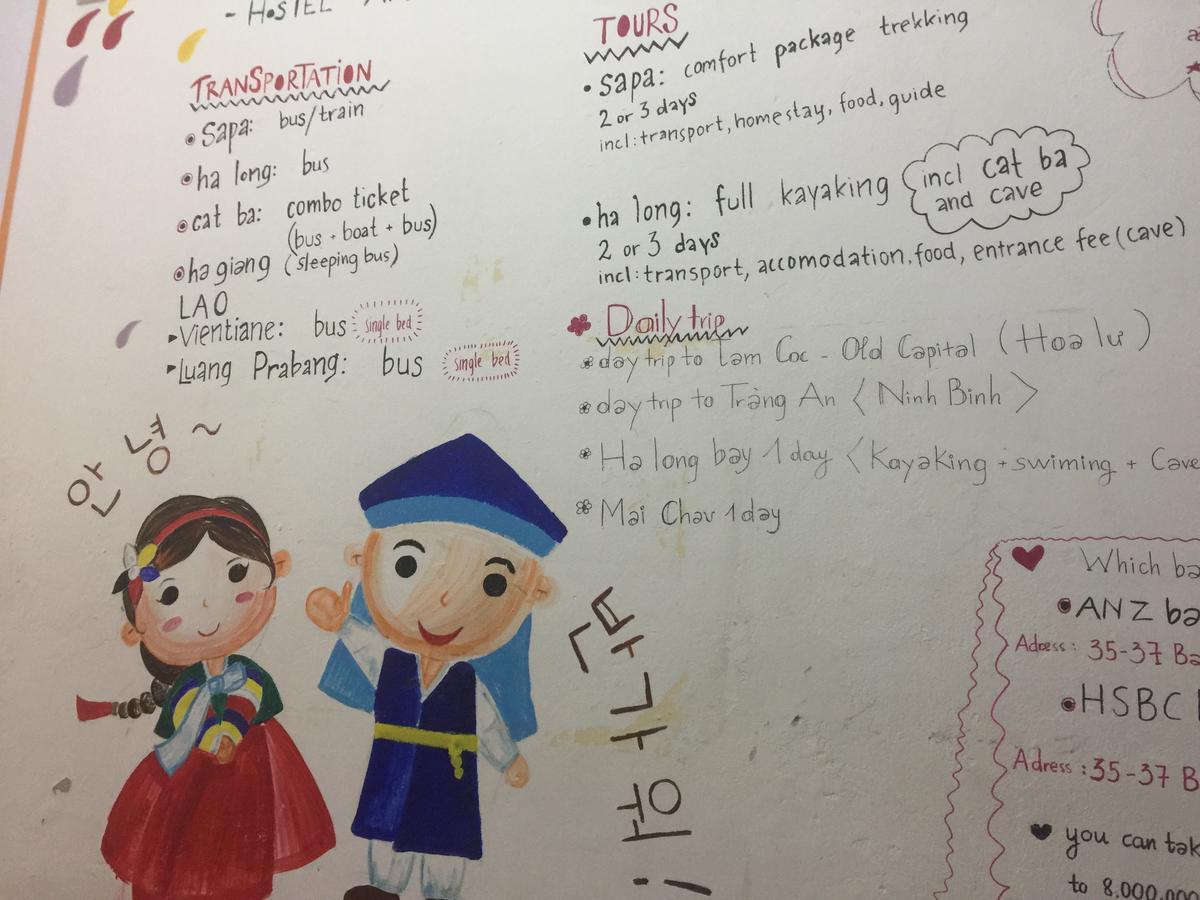 - HOSTEL
TRANSPORTATION
Sapa: bus/train
ha long: bus
cat ba: combo ticket
(bus + boat + bus)
ha giang (sleeping bus)
LAO
Vientiane: bus single bed
Luang Prabang: bus single bed
안녕~
TOURS
sapa: comfort package trekking
2 or 3 days
incl: transport, homestay, food, guide
ha long: full kayaking
incl cat ba
and cave
2 or 3 days
incl: transport, accomodation, food, entrance fee (cave)
Daily trip
day trip to tam Coc - Old Capital (Hoa lư)
day trip to Tràng An < Ninh Binh >
Ha long bay 1 day < Kayaking + swiming + Cave
Mai Chau 1 day
Which ba
ANZ ba
Adress: 35-37 Ba
HSBC
Adress: 35-37 B
you can tak
to 8.000.000